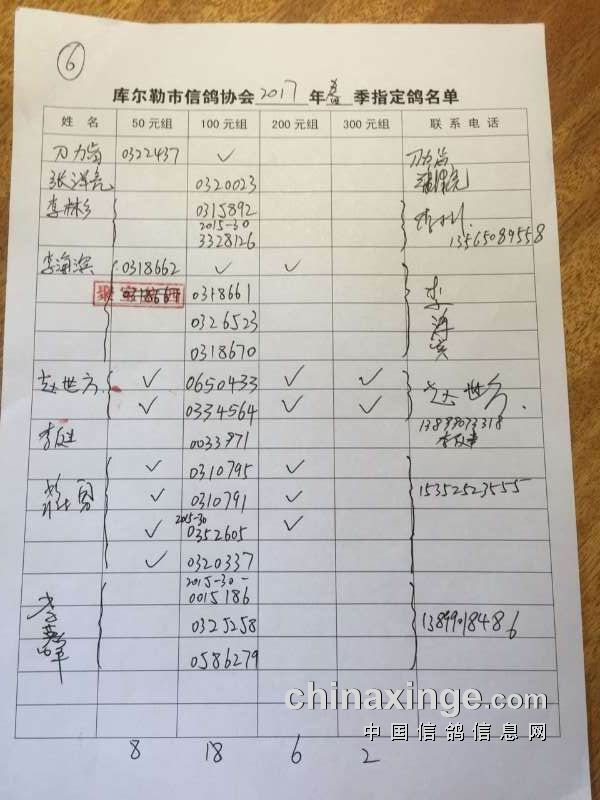 ⑥
库尔勒市信鸽协会2017年春季指定鸽名单
姓 名 50元组 100元组 200元组 300元组 联系电话
0322437 ✓
0320023
李林 0315892
2015-30
3328126 13565089558
李海滨 0318662 ✓ ✓
0318661 李海滨
0326523
0318670
赵世方 ✓ 0650433 ✓ ✓ 赵世方
✓ 0334564 ✓ ✓
0033971
✓ 0310795 ✓
✓ 0310791 ✓ 15352523555
2015-30
✓ 0352605 ✓
✓ 0320337
2015-30-
0015186
0325258
0586279
8 18 6 2
chinaxinge.com
中国信鸽信息网